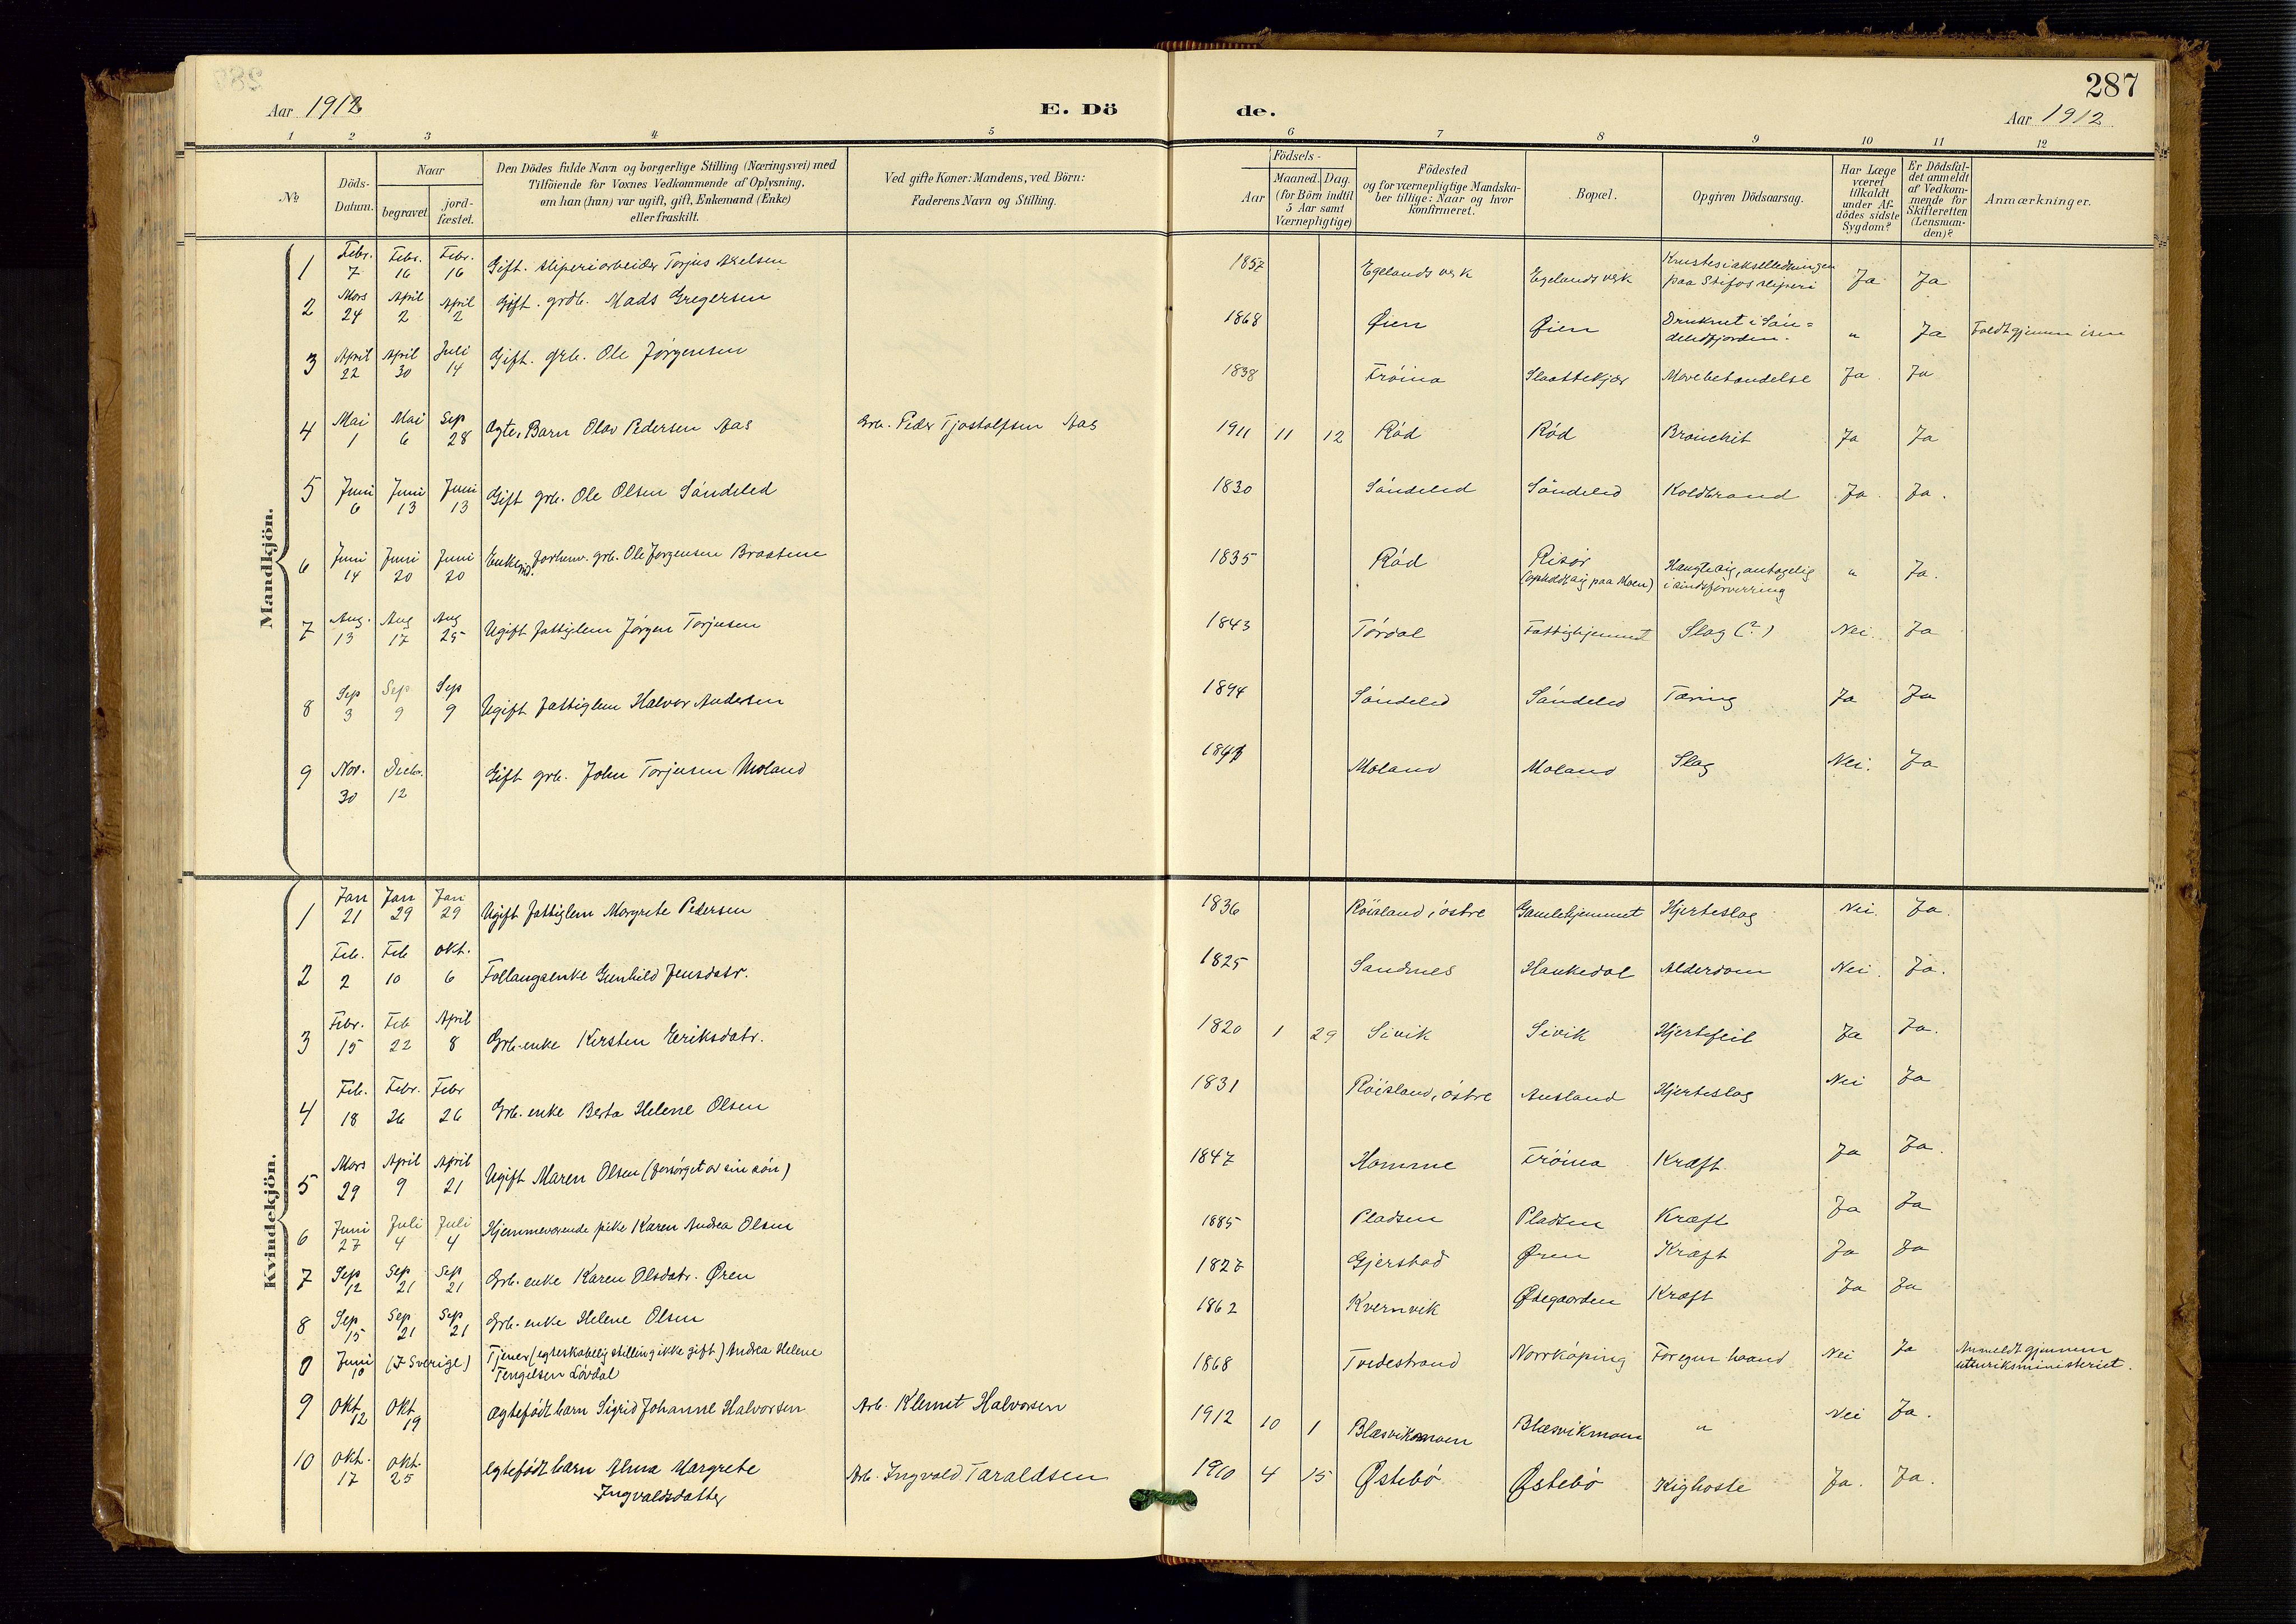 287
Aar 1912 E. Dö de. Aar 1912
1 2 3 4 5 6 7 8 9 10 11 12
№
Döds-
Datum.
Naar
begravet.
jord-
fæstet.
Den Dödes fulde Navn og borgerlige Stilling (Næringsvei) med
Tilföiende for Voxnes Vedkommende af Oplysning,
om han (hun) var ugift, gift, Enkemand (Enke)
eller fraskilt.
Ved gifte Koner: Mandens, ved Börn:
Faderens Navn og Stilling.
Födsels-
Aar
Maaned. Dag.
(for Börn indtil
5 Aar samt
Værnepligtige)
Födested
og for værnepligtige Mandska-
ber tillige: Naar og hvor
konfirmeret.
Bopæl.
Opgiven Dödsaarsag.
Har Læge
været
tilkaldt
under Af-
dödes sidste
Sygdom?
Er Dödsfal-
det anmeldt
af Vedkom-
mende for
Skifteretten
(Lensman-
den)?
Anmærkninger.
Mandkjön.
1 Febr. 7 Febr. 16 Febr. 16 Gift. sliperiarbeider Torjus Axelsen 1857 Egelands verk Egelands verk Knustes i akselledningen paa Stifos sliperi Ja Ja
2 Mars 24 April 2 April 2 Gift. grdb. Mads Gregersen 1868 Øien Øien Druknet i Sön=deledfjorden. " Ja Faldt gjennem isen
3 April 22 April 30 Juli 14 Gift. grb. Ole Jørgensen 1838 Fröina Slaattekjær Mavebetændelse Ja Ja
4 Mai 1 Mai 6 Sep 28 Ægte, Barn Olav Pedersen Aas Grb. Peder Tjøstolfsen Aas 1911 11 12 Röd Röd Bronchit Ja Ja
5 Juni 6 Juni 13 Juni 13 Gift grb. Ole Olsen Söndeled 1830 Söndeled Söndeled Koldbrand Ja Ja.
6 Juni 14 Juni 20 Juni 20 Enkemd. forhenv. grb. Ole Jørgensen Braaten 1835 Röd Risör (opholdt sig paa Moen) Hængte sig, antagelig i sindsforvirring " Ja.
7 Aug. 13 Aug 17 Aug 25 Ugift fattiglem Jörgen Torjusen 1843 Tördal Fattighjemmet Slag (?) Nei Ja
8 Sep 3 Sep 9 Sep 9 Ugift fattiglem Halvor Andersen 1894 Söndeled Söndeled Tæring Ja Ja
9 Nov. 30 Decbr. 12 Gift grb. John Torjusen Moland Moland Moland Slag Nei. Ja
Kvindekjön.
1 Jan 21 Jan 29 Jan 29 Ugift fattiglem Margrete Pedersen 1836 Röisland, östre Gamlehjemmet Hjerteslag Nei Ja.
2 Feb. 2 Feb 10 Okt. 6 Follaugsenke Gunhild Jensdatr. 1825 Sandnes Haukedal Alderdom Nei Ja.
3 Febr. 15 Feb 22 April 8 Grb.enke Kirsten Eriksdatr. 1820 1 29 Sivik Sivik Hjertefeil Ja Ja.
4 Feb. 18 Febr. 26 Febr 26 Grb. enke Berta Helene Olsen 1831 Röisland, östre Ausland Hjerteslag Nei Ja
5 Mars 29 April 9 April 21 Ugift Maren Olsen (forsörget av sin sön) 1847 Homme Fröina Kræft Ja Ja.
6 Juni 27 Juli 4 Juli 4 Hjemmeværende pike Karen Andrea Olsen 1885 Pladsen Pladsen Kræft Ja Ja
7 Sep 12 Sep 21 Sep 21 Grb. enke Karen Olsdatr. Øren 1827 Gjerstad Øren Kræft Ja Ja
8 Sep 15 Sep 21 Sep 21 Grb. enke Helene Olsen 1862 Kvernvik Ødegaarden Kræft Ja Ja
0 Juni 10 (I Sverige) Tjener (egteskabelig stilling ikke gift) Andrea Helene Tengelsen Lövdal 1868 Tvedestrand Norrköping For egen haand Nei Ja Anmeldt gjennem utenriksministeriet.
9 Okt 12 Okt 19 Ægtefödt barn Sigrid Johanne Halvorsen Arb. Klemet Halvorsen 1912 10 1 Blæsvikmoen Blæsvikmoen " Nei Ja.
10 Okt. 17 Okt 25 Egtefödt barn Alma Margrete Ingvaldsdatter Arb. Ingvald Taraldsen 1910 4 15 Østebö Østebö Kighoste Ja. Ja.